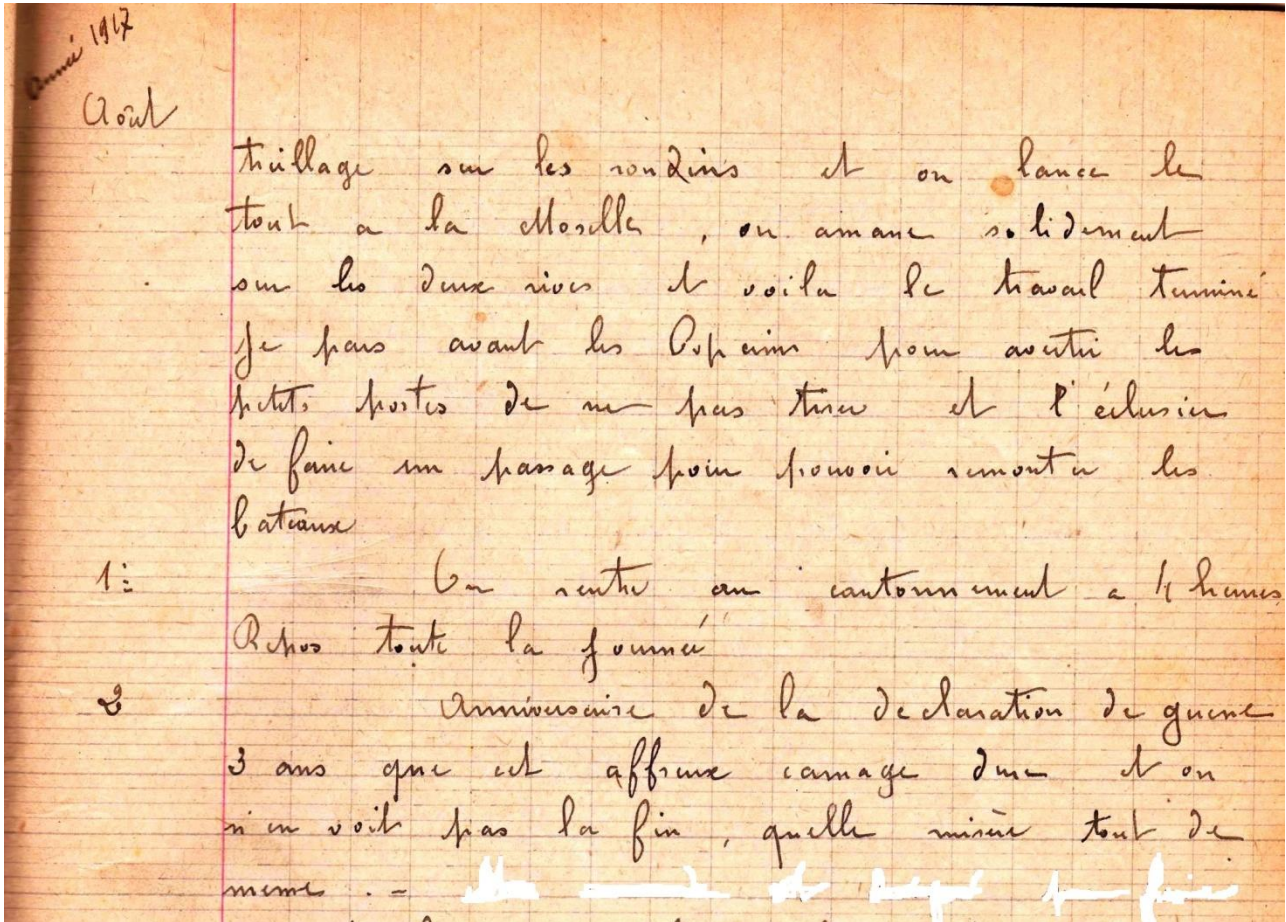 Année 1917
Août
treillage sur les rondins et on lance le
tout a la Moselle, on amare solidement
sur les deux rives et voila le travail terminé
je pars avant les Copains pour avertir les
petits postes de ne pas tirer et l'éclusier
de faire un passage pour pouvoir remonter les
bateaux
1: On rentre au cantonnement a 4 heures
Repos toute la journée
2 Anniversaire de la declaration de guerre
3 ans que cet affreux carnage dure et on
n'en voit pas la fin, quelle misère tout de
meme. -